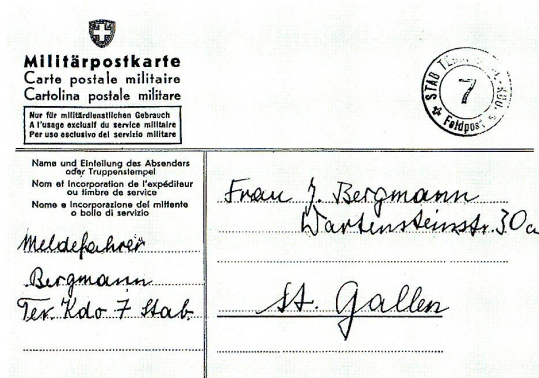 Militärpostkarte
Carte postale militaire
Cartolina postale militare
Nur für militärdienstlichen Gebrauch
A l'usage exclusif du service militaire
Per uso esclusivo del servizio militare
STAB TERR. KDO.
7
Feldpost
Name und Einteilung des Absenders
oder Truppenstempel
Nom et incorporation de l'expéditeur
ou timbre de service
Nome e incorporazione del mittente
o bollo di servizio
Meldefahrer
Bergmann
Ter. Kdo 7 Stab
Frau J. Bergmann
Wartensteinstr. 30a
St. Gallen